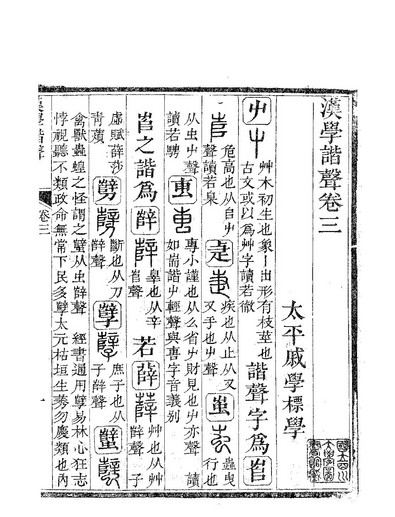 漢學諧聲卷三
太平戚學標學
屮 艸木初生也象丨出形有枝莖也古文或以為艸字讀若徹 諧聲字為 㠯
危高也从𠂤屮聲讀若臬 疾也从止从又又手也屮聲 蚩 蟲曳行也
从虫屮聲讀若騁 叀 專小謹也从幺省屮財見也屮亦聲 讀如耑諧屮輕聲與專字音義別
㠯之諧為 辥 辠也从辛㠯聲 若 薛 艸也从艸辥聲 子
虛賦薛莎青薠 劈 斷也从刀辥聲 孼 庶子也从子辥聲 蠥
禽獸蟲蝗之怪謂之蠥从虫辥聲 經書通用孼易林心狂志
悖視聽不類政命無常下民多孼太元枯垣生莠勿慶類也內
卷三
一